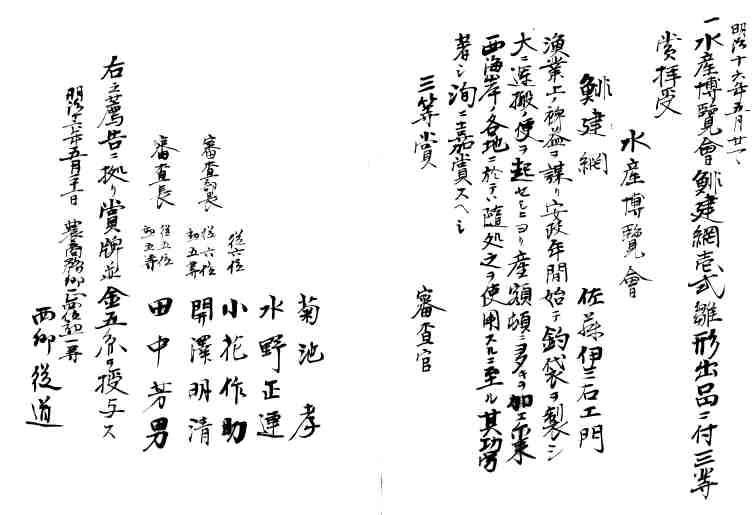 明治十六年五月廿一
一水産博覽會鯡建網壱式雛形出品ニ付三等
賞拝受
水産博覽會
鯡建網　佐藤伊三右エ門
漁業上ノ裨益ヲ謀リ安政年間始テ釣袋ヲ製シ
大ニ運搬ノ便ヲ起セシニヨリ産額頓ニ多キヲ加エ爾来
西海岸ノ各地ニ於テハ隨処之ヲ使用スルニ至ル其功労
著シ洵ニ嘉賞スヘシ
三等賞　審査官
菊池　孝
水野正連
從六位　小花作助
審査副長　從六位　勲五等　開澤明清
審査長　從五位　勲五等　田中芳男
右之薦告ニ拠リ賞牌並金五円ヲ授与ス
明治十六年五月三十一日　農商務卿　勲一等
西郷從道